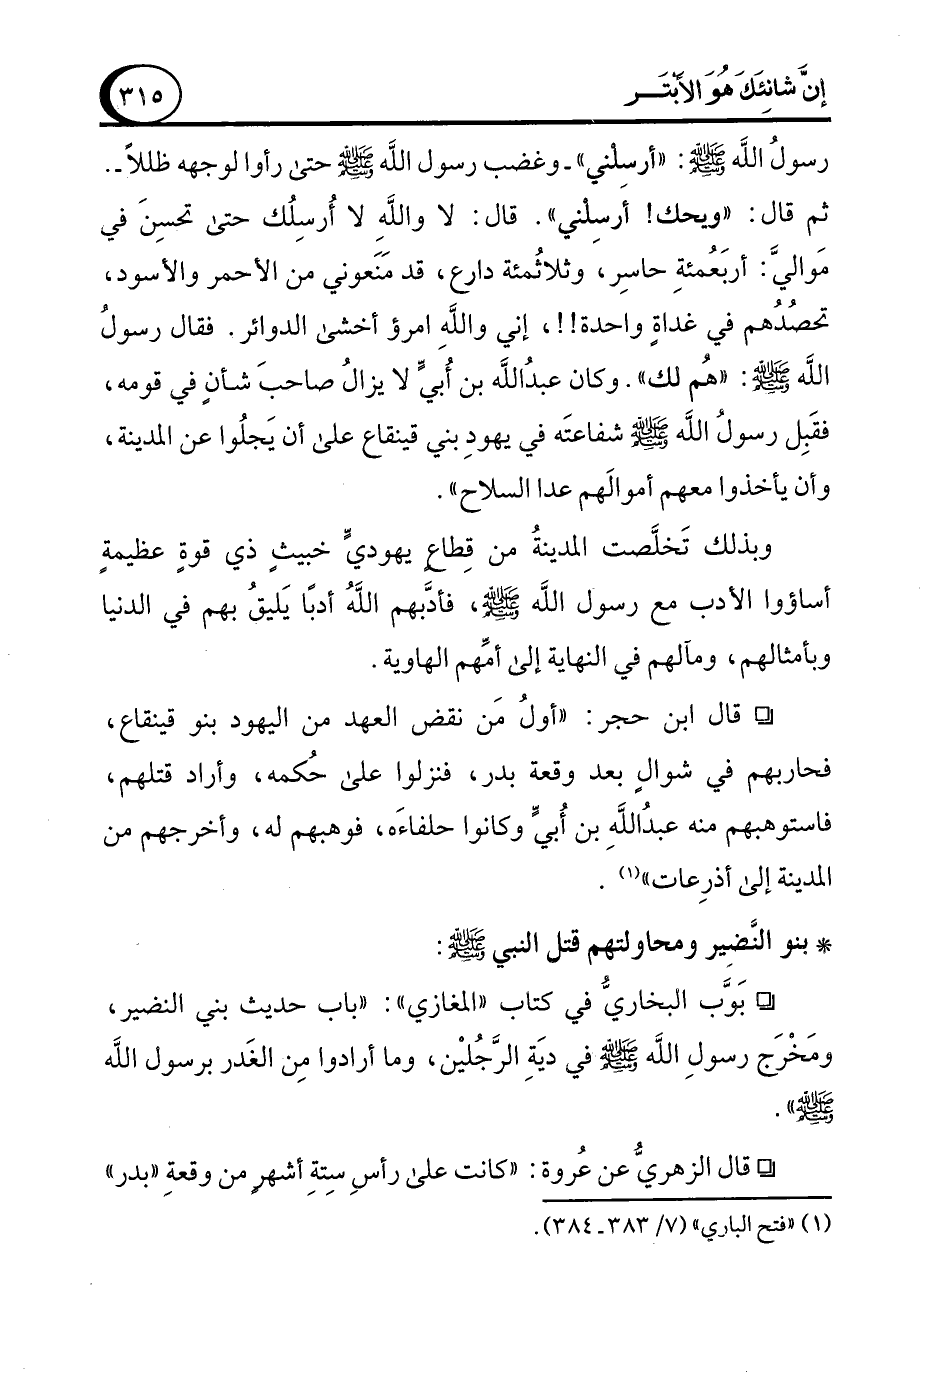 إنَّ شانِئَكَ هُوَ الأبْتَـــر
٣١٥
رسولُ اللَّه ﷺ: «أرسِلْني» ـ وغضب رسول اللَّه ﷺ حتىٰ رأوا لوجهه ظللاً ـ.
ثم قال: «ويحك! أرسِلْني». قال: لا واللَّهِ لا أُرسِلُك حتىٰ تحسِنَ في
مَواليَّ: أربَعُمئةِ حاسِر، وثلاثُمئة دارع، قد مَنَعوني من الأحمر والأسود،
تحصُدُهم في غداةٍ واحدة!!، إني واللَّهِ امرؤ أخشىٰ الدوائر. فقال رسولُ
اللَّه ﷺ: «هُم لك». وكان عبدُاللَّه بن أُبيٍّ لا يزالُ صاحبَ شأنٍ في قومه،
فقَبِل رسولُ اللَّه ﷺ شفاعتَه في يهودِ بني قينقاع علىٰ أن يَجلُوا عن المدينة،
وأن يأخذوا معهم أموالَهم عدا السلاح».
وبذلك تَخلَّصت المدينةُ من قِطاعٍ يهوديٍّ خبيثٍ ذي قوةٍ عظيمةٍ
أساؤوا الأدب مع رسول اللَّه ﷺ، فأدَّبهم اللَّهُ أدبًا يَليقُ بهم في الدنيا
وبأمثالهم، ومآلهم في النهاية إلىٰ أمِّهم الهاوية.
❏ قال ابن حجر: «أولُ مَن نقض العهد من اليهود بنو قينقاع،
فحاربهم في شوالٍ بعد وقعة بدر، فنزلوا علىٰ حُكمه، وأراد قتلهم،
فاستوهبهم منه عبدُاللَّهِ بن أُبيٍّ وكانوا حلفاءَه، فوهبهم له، وأخرجهم من
المدينة إلىٰ أذرِعات»(١).
* بنو النَّضِير ومحاولتهم قتل النبي ﷺ:
❏ بَوَّب البخاريُّ في كتاب «المغازي»: «باب حديث بني النضير،
ومَخْرَج رسولِ اللَّه ﷺ في ديَةِ الرَّجُلَيْن، وما أرادوا مِن الغَدر برسول اللَّه
ﷺ».
❏ قال الزهريُّ عن عُروة: «كانت علىٰ رأسِ سِتةِ أشهرٍ من وقعةِ «بدر»
(١) «فتح الباري» (٧/ ٣٨٣ ـ ٣٨٤).